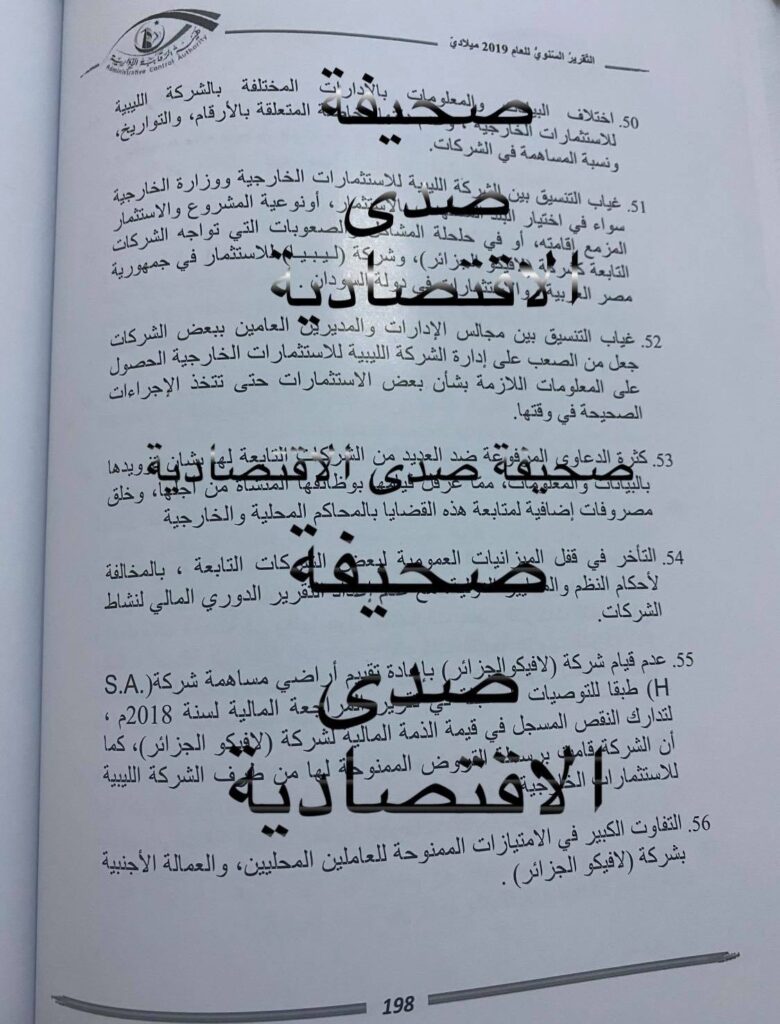 هيئة الرقابة الإدارية
Administrative Control Authority
التقرير السنوي للعام 2019 ميلادي
50. اختلاف والمعلومات بالأدارات المختلفة بالشركة الليبية
للاستثمارات الخارجية ، المتعلقة بالأرقام، والتواريخ،
ونسبة المساهمة في الشركات.
صحيفة
51. غياب التنسيق بين الشركة الليبية للاستثمارات الخارجية ووزارة الخارجية
سواء في اختيار البلد بالاستثمار، أونوعية المشروع والاستثمار
المزمع إقامته، أو في حلحلة الصعوبات التي تواجه الشركات
التابعة لافيكو الجزائر)، وشركة (ليبيا للاستثمار في جمهورية
مصر العربية في دولة السودان.
صدى
الاقتصادية
52. غياب التنسيق بين مجالس الإدارات والمديرين العامين ببعض الشركات
جعل من الصعب على إدارة الشركة الليبية للاستثمارات الخارجية الحصول
على المعلومات اللازمة بشأن بعض الاستثمارات حتى تتخذ الإجراءات
الصحيحة في وقتها.
53. كثرة الدعاوى المرفوعة ضد العديد من الشركات التابعة لها بشأن تزويدها
صحيفة صدى الاقتصادية
بالبيانات والمعلومات، مما عرقل قيامها بوظائفها المنشأة من أجلها، وخلق
مصروفات إضافية لمتابعة هذه القضايا بالمحاكم المحلية والخارجية
54. التأخر في قفل الميزانيات العمومية لبعض الشركات التابعة ، بالمخالفة
لأحكام النظم التقرير الدوري المالي لنشاط
الشركات.
صحيفة
55. عدم قيام شركة (لافيكو الجزائر) بإعادة تقييم أراضي مساهمة شركة(S.A.
H) طبقا للتوصيات المراجعة المالية لسنة 2018م ،
لتدارك النقص المسجل في قيمة الذمة المالية لشركة (لافيكو الجزائر)، كما
أن الشركة قامت برسملة القروض الممنوحة لها من طرف الشركة الليبية
للاستثمارات الخارجية.
صدى
الاقتصادية
56. التفاوت الكبير في الامتيازات الممنوحة للعاملين المحليين، والعمالة الأجنبية
بشركة (لافيكو الجزائر) .
198